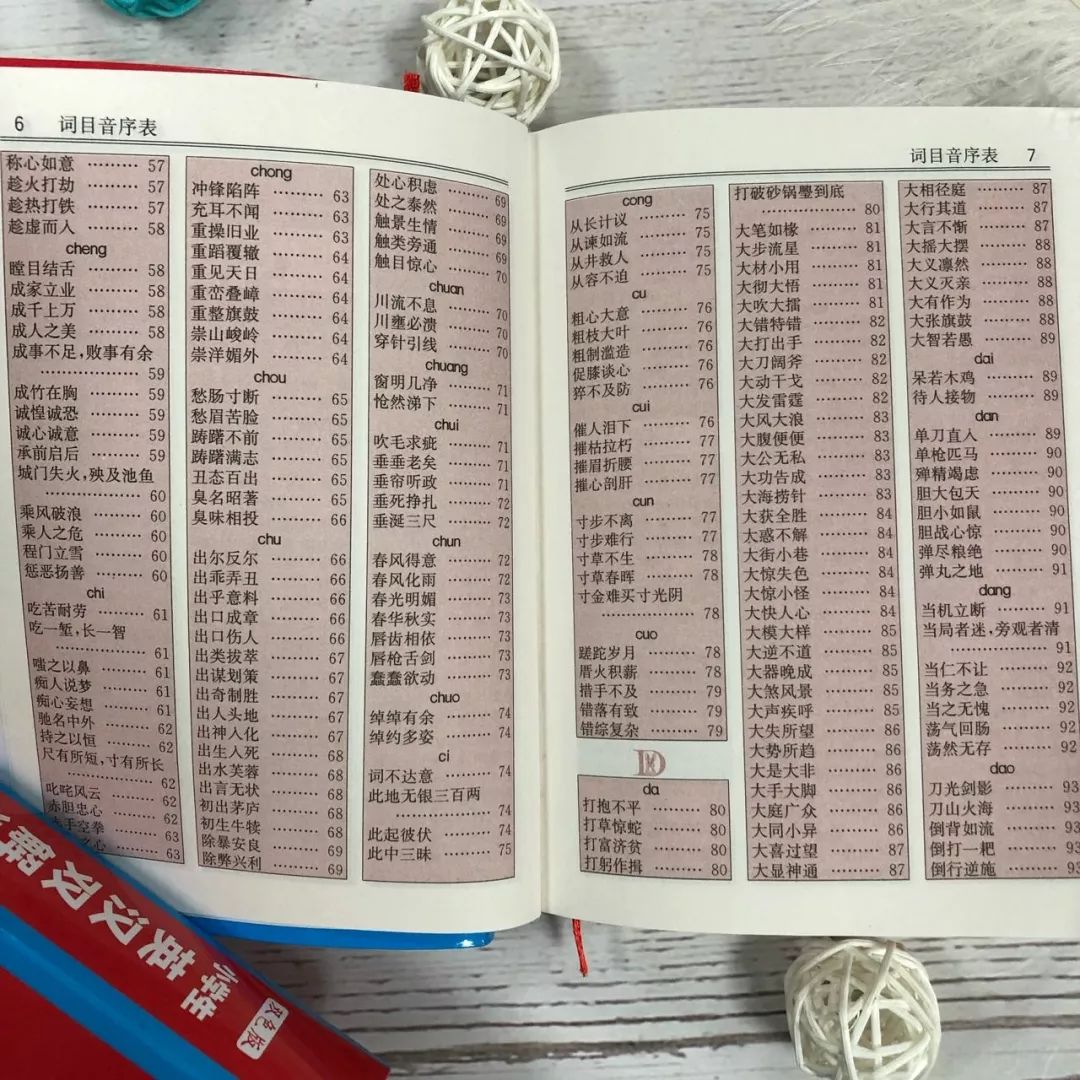 6 词目音序表
称心如意 ……… 57
趁火打劫 ……… 57
趁热打铁 ……… 57
趁虚而人 ……… 58
cheng
瞠目结舌 ……… 58
成家立业 ……… 58
成千上万 ……… 58
成人之美 ……… 58
成事不足,败事有余
……………… 59
成竹在胸 ……… 59
诚惶诚恐 ……… 59
诚心诚意 ……… 59
承前启后 ……… 59
城门失火,殃及池鱼
……………… 60
乘风破浪 ……… 60
乘人之危 ……… 60
程门立雪 ……… 60
惩恶扬善 ……… 60
chi
吃苦耐劳 ……… 61
吃一堑,长一智
……………… 61
嗤之以鼻 ……… 61
痴人说梦 ……… 61
痴心妄想 ……… 61
驰名中外 ……… 62
持之以恒 ……… 62
尺有所短,寸有所长
……………… 62
叱咤风云 ……… 62
赤胆忠心 ……… 62
手空拳 ……… 63
之心 ……… 63
chong
冲锋陷阵 ……… 63
充耳不闻 ……… 63
重操旧业 ……… 63
重蹈覆辙 ……… 64
重见天日 ……… 64
重峦叠嶂 ……… 64
重整旗鼓 ……… 64
崇山峻岭 ……… 64
崇洋媚外 ……… 64
chou
愁肠寸断 ……… 65
愁眉苦脸 ……… 65
踌躇不前 ……… 65
踌躇满志 ……… 65
丑态百出 ……… 65
臭名昭著 ……… 65
臭味相投 ……… 66
chu
出尔反尔 ……… 66
出乖弄丑 ……… 66
出乎意料 ……… 66
出口成章 ……… 66
出口伤人 ……… 66
出类拔萃 ……… 67
出谋划策 ……… 67
出奇制胜 ……… 67
出人头地 ……… 67
出神入化 ……… 67
出生入死 ……… 68
出水芙蓉 ……… 68
出言无状 ……… 68
初出茅庐 ……… 68
初生牛犊 ……… 68
除暴安良 ……… 69
除弊兴利 ……… 69
处心积虑 ……… 69
处之泰然 ……… 69
触景生情 ……… 69
触类旁通 ……… 69
触目惊心 ……… 70
chuan
川流不息 ……… 70
川壅必溃 ……… 70
穿针引线 ……… 70
chuang
窗明几净 ……… 71
怆然涕下 ……… 71
chui
吹毛求疵 ……… 71
垂垂老矣 ……… 71
垂帘听政 ……… 71
垂死挣扎 ……… 72
垂涎三尺 ……… 72
chun
春风得意 ……… 72
春风化雨 ……… 72
春光明媚 ……… 73
春华秋实 ……… 73
唇齿相依 ……… 73
唇枪舌剑 ……… 73
蠢蠢欲动 ……… 73
chuo
绰绰有余 ……… 74
绰约多姿 ……… 74
ci
词不达意 ……… 74
此地无银三百两
……………… 74
此起彼伏 ……… 74
此中三昧 ……… 75
词目音序表 7
cong
从长计议 ……… 75
从谏如流 ……… 75
从井救人 ……… 75
从容不迫 ……… 75
cu
粗心大意 ……… 76
粗枝大叶 ……… 76
粗制滥造 ……… 76
促膝谈心 ……… 76
猝不及防 ……… 76
cui
催人泪下 ……… 76
摧枯拉朽 ……… 77
摧眉折腰 ……… 77
摧心剖肝 ……… 77
cun
寸步不离 ……… 77
寸步难行 ……… 77
寸草不生 ……… 78
寸草春晖 ……… 78
寸金难买寸光阴
……………… 78
cuo
蹉跎岁月 ……… 78
厝火积薪 ……… 78
措手不及 ……… 79
错落有致 ……… 79
错综复杂 ……… 79
D
da
打抱不平 ……… 80
打草惊蛇 ……… 80
打富济贫 ……… 80
打躬作揖 ……… 80
打破砂锅璺到底
……………… 80
大笔如椽 ……… 81
大步流星 ……… 81
大材小用 ……… 81
大彻大悟 ……… 81
大吹大擂 ……… 81
大错特错 ……… 82
大打出手 ……… 82
大刀阔斧 ……… 82
大动干戈 ……… 82
大发雷霆 ……… 82
大风大浪 ……… 83
大腹便便 ……… 83
大公无私 ……… 83
大功告成 ……… 83
大海捞针 ……… 83
大获全胜 ……… 84
大惑不解 ……… 84
大街小巷 ……… 84
大惊失色 ……… 84
大惊小怪 ……… 84
大快人心 ……… 84
大模大样 ……… 85
大逆不道 ……… 85
大器晚成 ……… 85
大煞风景 ……… 85
大声疾呼 ……… 85
大失所望 ……… 86
大势所趋 ……… 86
大是大非 ……… 86
大手大脚 ……… 86
大庭广众 ……… 86
大同小异 ……… 86
大喜过望 ……… 87
大显神通 ……… 87
大相径庭 ……… 87
大行其道 ……… 87
大言不惭 ……… 87
大摇大摆 ……… 88
大义凛然 ……… 88
大义灭亲 ……… 88
大有作为 ……… 88
大张旗鼓 ……… 88
大智若愚 ……… 89
dai
呆若木鸡 ……… 89
待人接物 ……… 89
dan
单刀直人 ……… 89
单枪匹马 ……… 90
殚精竭虑 ……… 90
胆大包天 ……… 90
胆小如鼠 ……… 90
胆战心惊 ……… 90
弹尽粮绝 ……… 90
弹丸之地 ……… 91
dang
当机立断 ……… 91
当局者迷,旁观者清
……………… 91
当仁不让 ……… 92
当务之急 ……… 92
当之无愧 ……… 92
荡气回肠 ……… 92
荡然无存 ……… 92
dao
刀光剑影 ……… 93
刀山火海 ……… 93
倒背如流 ……… 93
倒打一耙 ……… 93
倒行逆施 ……… 93
小学生
英汉汉
双色版